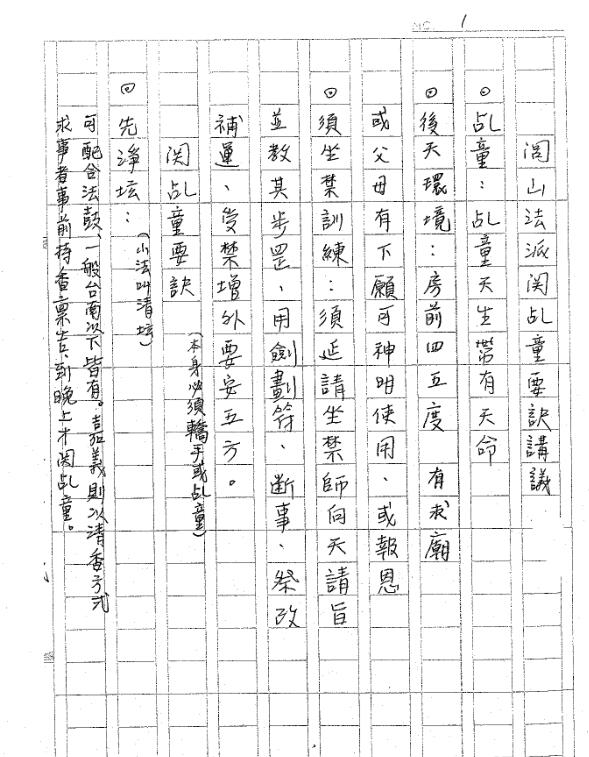 NO. 1
閭山法派関乩童要訣講議
◎乩童：乩童天生帶有天命
◎後天環境：房前四五度 有求廟
或父母有下願可神明使用、或報恩
◎須坐禁訓練：須延請坐禁師向天請旨
並教其步罡、用劍劃符、断事、祭改
補運、受禁壇外要安五方。
関乩童要訣
(本身必須轎手或乩童)
◎先淨坛：
(小法叫清坛)
可配合法鼓、一般台南以下皆有。嘉義則以清香方式
求事者事前持香稟告、到晚上才関乩童。